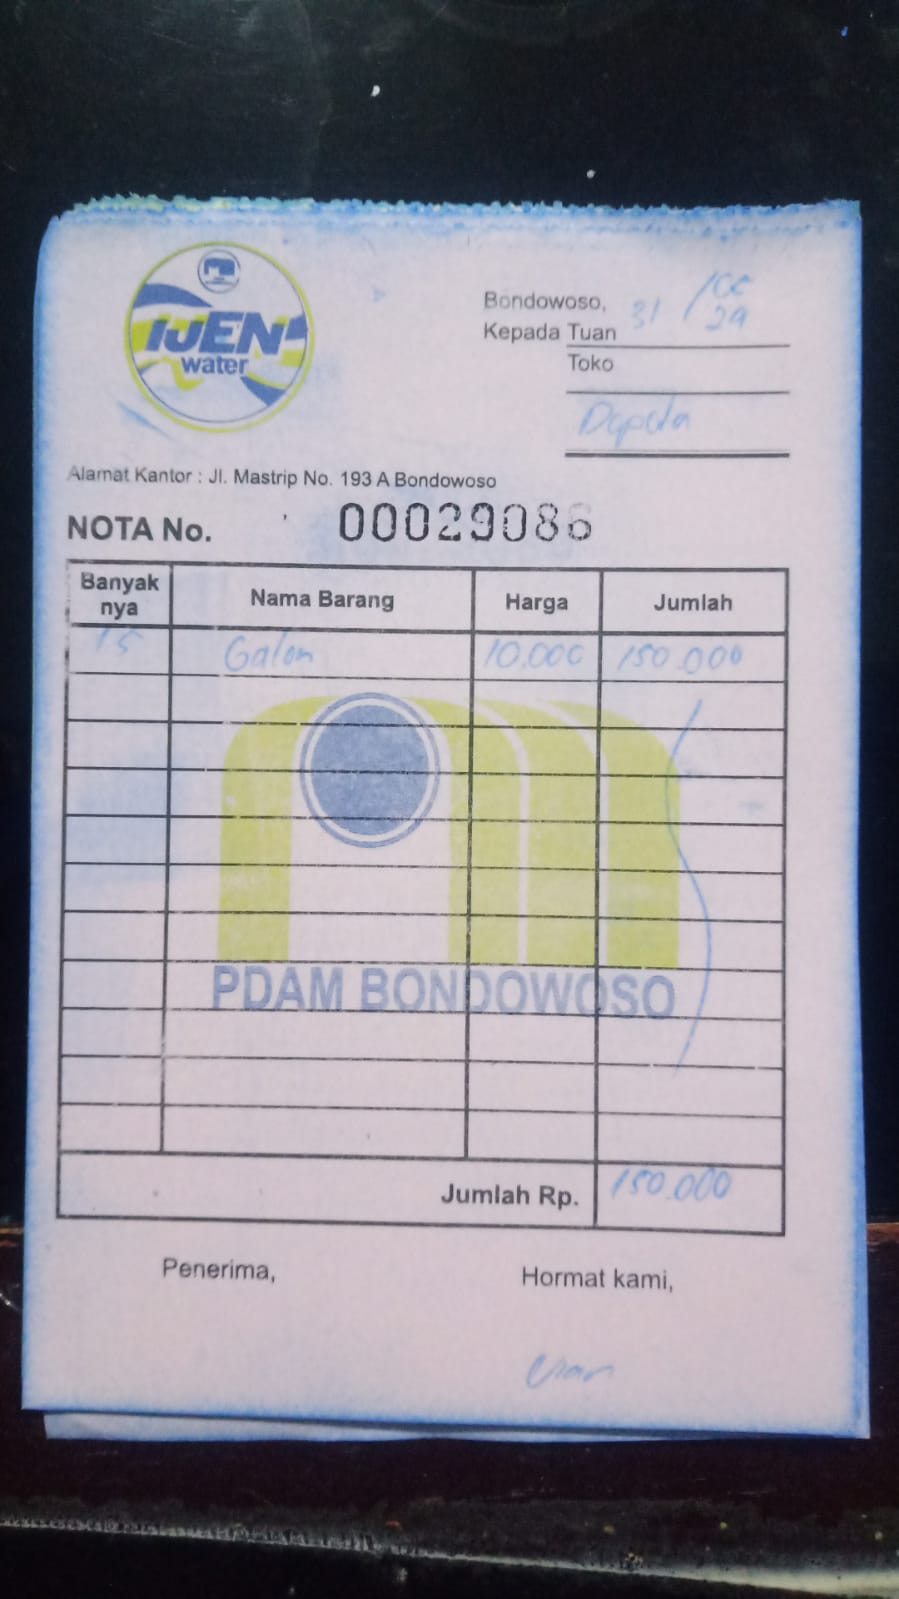 IJEN
water
Bondowoso, 31 /
29
Kepada Tuan
Toko
Alamat Kantor : Jl. Mastrip No. 193 A Bondowoso
NOTA No. 00029086
Banyak nya Nama Barang Harga Jumlah
15 Galon 10.000 150.000
PDAM BONDOWOSO
Jumlah Rp. 150.000
Penerima, Hormat kami,